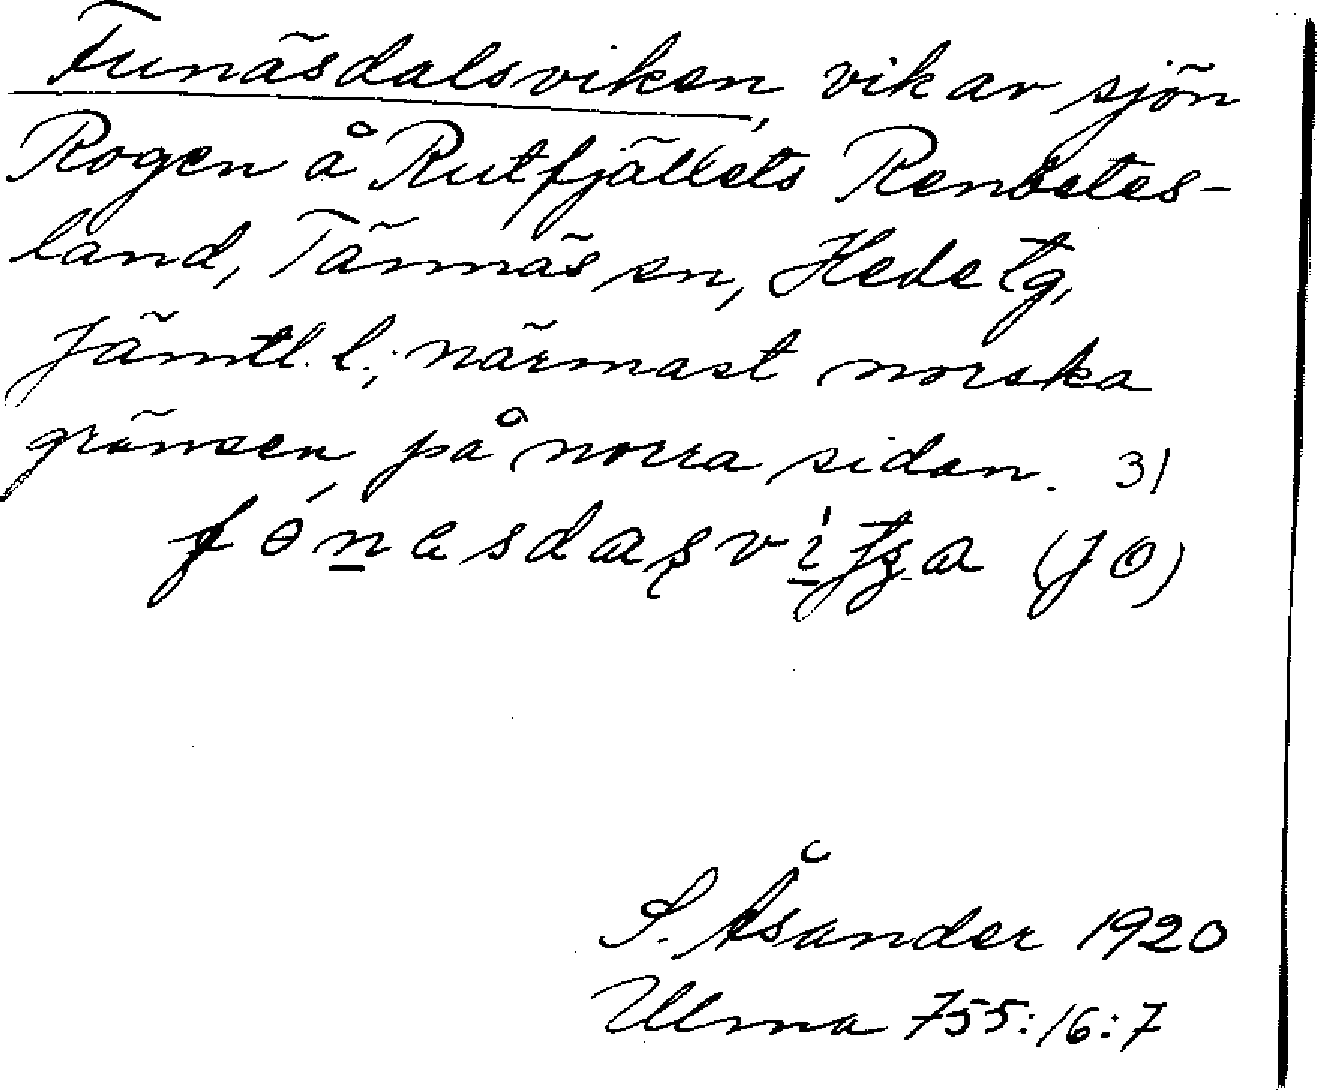 Funäsdalsviken, vik av sjön
Rogen å Rutfjällets Renbetes-
land, Tännäs sn, Hede tg,
Jämtl. l.; närmast norska
gränsen på norra sidan. 31
(JO)
S. Åsander 1920
Ulma 755:16:7